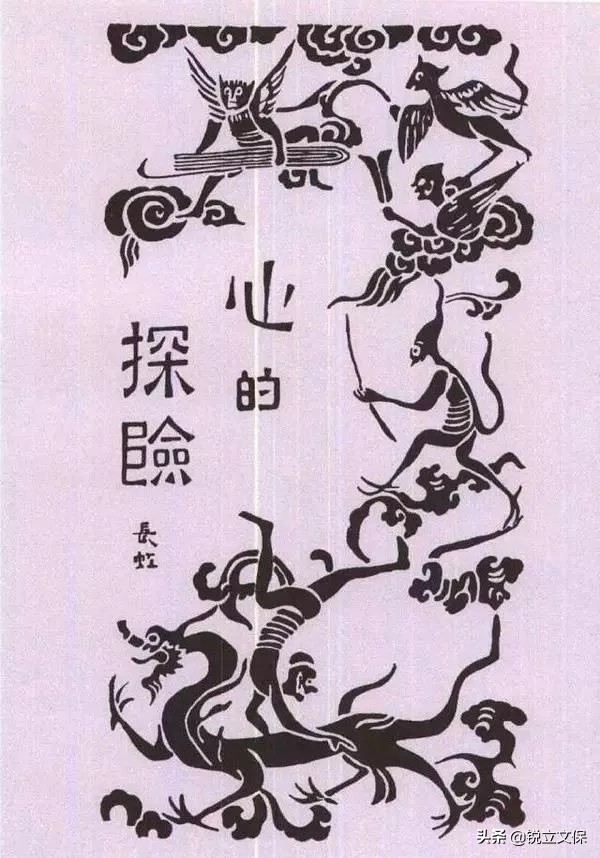 心的
探險
長虹
头条 @锐立文保